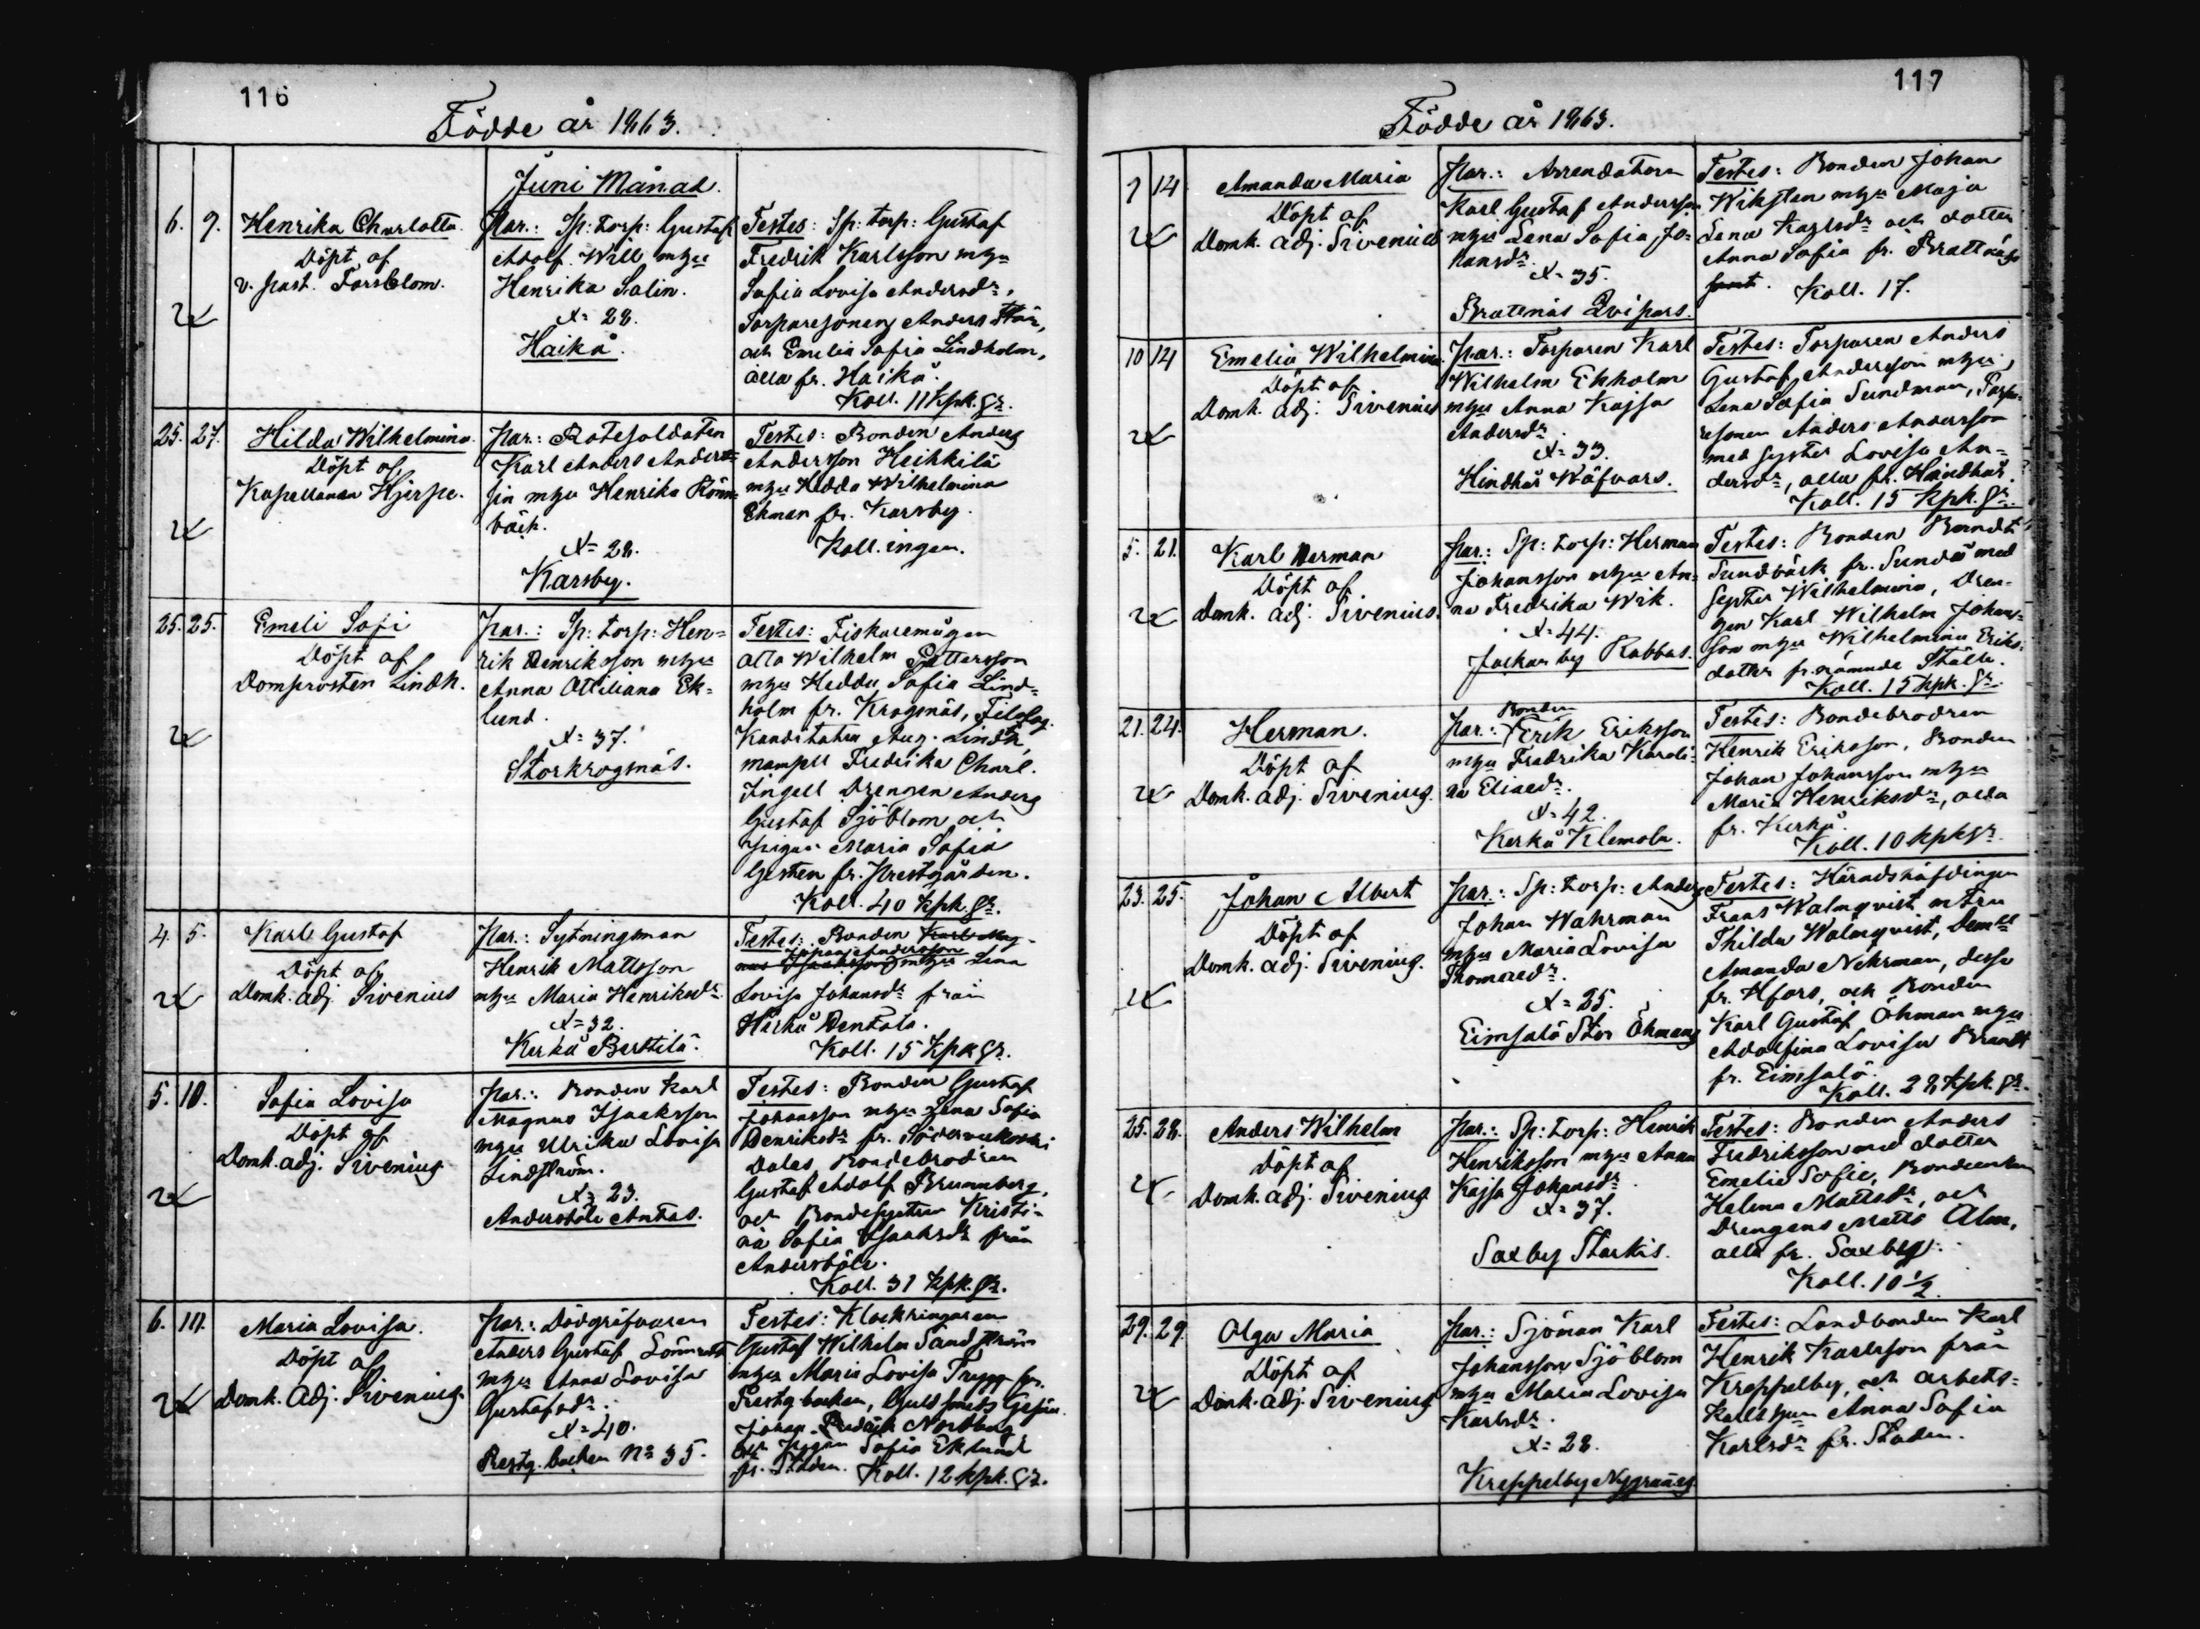 116
Födde år 1863.
Juni Månad.
6. 9. Henrika Charlotta
Döpt af
v. past. Forsblom.
Par.: Sp: torp: Gustaf
Adolf Will m hu
Henrika Salin.
28.
Haikå.
Testes: Sp: torp: Gustaf
Fredrik Karlsson m hu
Sofia Lovisa Andersdr,
Torparesonen Anders
och Emelia Sofia Lindholm,
alla fr. Haikå.
Koll. 11 kpk. Sr.
25. 27. Hilda Wilhelmina
Döpt af
Kapellanen Hjerpe.
Par: Rotesoldaten
Karl Anders Anders=
sin m hu Henrika Rönn=
bäck.
28.
Karsby.
Testes: Bonden Anders
Andersson Heikkilä
m hu Hedda Wilhelmina
Ekman fr. Karsby.
Koll. ingen.
25. 25. Emeli Sofi
Döpt af
Domprosten Lindh.
Par.: Sp: torp: Hen=
rik Henriksson m hu
Anna Ottiliana Ek=
lund.
37.
Storkrogsnäs.
Testes: Fiskaremågen
Otto Wilhelm Pettersson
m hu Hedda Sofia Lind=
holm fr. Krogsnäs, Filosof.
Kandidaten Aug. Lindh,
mamsell Fredrika Charl.
Ingell Drengen Anders
Gustaf Sjöblom och
pigan Maria Sofia
Gisten fr. Prestgården.
Koll. 40 kpk. Sr.
4. 5. Karl Gustaf
Döpt af
Domk. adj. Sirenius
Par.: Sytningsman
Henrik Mattsson
m hu Maria Henriksdr
32.
Kerkå Berttilä.
Testes: Bonden Karl Mag-
Johan Andersson
nus Isaaksson m hu Lena
Lovisa Johansdr från
Kerkå Dentola.
Koll. 15 kpk Sr.
5. 10. Sofia Lovisa
Döpt af
Domk. adj. Sirenius
Par.: Bonden Karl
Magnus Isaaksson
m hu Ulrika Lovisa
Lindström.
23.
Andersböle Antas.
Testes: Bonden Gustaf
Johansson m hu Lena Sofia
Henriksdr fr. Söderveckoski
Dalas Bondebrodren
Gustaf Adolf Brunnberg,
och Bondesystern Kristi-
na Sofia Isaaksdr från
Andersböle.
Koll. 31 kpk. Sr.
6. 10. Maria Lovisa.
Döpt af
Domk. Adj. Sirenius
Par.: Dödgräfvaren
Anders Gustaf Lönnrot
m hu Anna Lovisa
Gustafsdr.
40.
Prestg. backen No 35.
Testes: Klockringaren
Gustaf Wilhelm Sandström
m hu Maria Lovisa Trygg fr.
Prestg. backen, Guldsmeds Gesäll
Johan Fredrik Nordberg
och pigan Sofia Eklund
fr. Staden. Koll. 12 kpk. Sr.
117
Födde år 1863.
7 14 Amanda Maria
Döpt af
Domk. adj. Sirenius
Par.: Arrendatorn
Karl Gustaf Andersson
m hu Lena Sofia Jo-
hansdr.
35.
Brattnäs Qvipars.
Testes: Bonden Johan
Wiksten m hu Maja
Lena Karlsdr och dotter
Anna Sofia fr. Brattnäs
samt. Koll. 17.
10 14 Emelia Wilhelmina
Döpt af
Domk. Adj. Sirenius
Par.: Torparen Karl
Wilhelm Ekholm
m hu Anna Kajsa
Andersdr.
33.
Hindhår Wäfvars.
Testes: Torparen Anders
Gustaf Andersson m hu,
Lena Sofia Sundman, Torpa-
resonen Anders Andersson
med syster Lovisa An=
dersdr, alla fr. Hindhår.
Koll. 15 kpk. Sr.
5. 21. Karl Herman
Döpt af
Domk. adj. Sirenius.
Par.: Sp: torp: Herman
Johansson m hu An-
na Fredrika Wik.
44.
Jackarby Rabbas.
Testes: Bonden Berndt
Sundbäck fr. Sundö med
Syster Wilhelmina, Dren-
gen Karl Wilhelm Johans-
son m hu Wilhelmina Eriks-
dotter fr. nämnde Ställe.
Koll. 15 kpk. Sr.
21. 24. Herman.
Döpt af
Domk. adj. Sirenius.
Par.: Bonden Erik Eriksson
m hu Fredrika Karoli-
na Eliaedr.
42.
Kerkå Klemola.
Testes: Bondebrodren
Henrik Eriksson, Bonden
Johan Johansson m hu
Maria Henriksdr, alla
fr. Kerkå.
Koll. 10 kpk Sr.
23. 25. Johan Albert
Döpt af
Domk. adj. Sirenius.
Par.: Sp: torp: Anders
Johan Wahrman
m hu Maria Lovisa
Thomasdr.
25.
Eimsalö Stor Öhmans
Testes: Häradshöfdingen
Frans Walmqvist m fru
Thilda Walmqvist, Demll
Amanda Nehrman, desse
fr. Hfors, och Bonden
Karl Gustaf Öhman m hu
Adolfina Lovisa Brandt
fr. Eimsalö.
Koll. 28 kpk. Sr.
25. 28. Anders Wilhelm
Döpt af
Domk. adj. Sirenius
Par.: Sp: torp: Henrik
Henriksson m hu Anna
Kajsa Johansdr
37.
Saxby Starkis.
Testes: Bonden Anders
Fredriksson med dotter
Emelie Sofie, Bondeenkan
Helena Mattsdr, och
Drengens Matts Alm,
alla fr. Saxby.
Koll. 10 1/2
29. 29. Olga Maria
Döpt af
Domk. adj. Sirenius
Par.: Sjöman Karl
Johansson Sjöblom
m hu Maria Lovisa
Karlsdr.
28.
Kreppelby Nygränds
Testes: Landbonden Karl
Henrik Karlsson från
Kreppelby, och arbets-
karls hun Anna Sofia
Karlsdr fr. Staden.